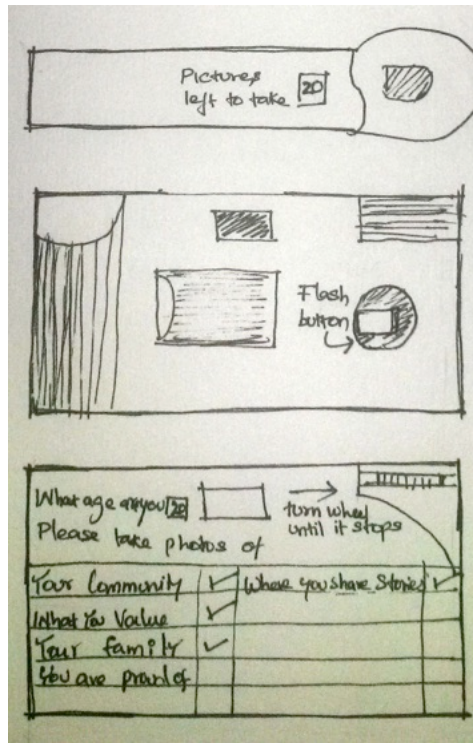 Pictures
left to take 20
Flash
button
What age are you 20
turn wheel
until it stops
Please take photos of
Your Community
Where you share Stories
What You Value
Your family
You are proud of